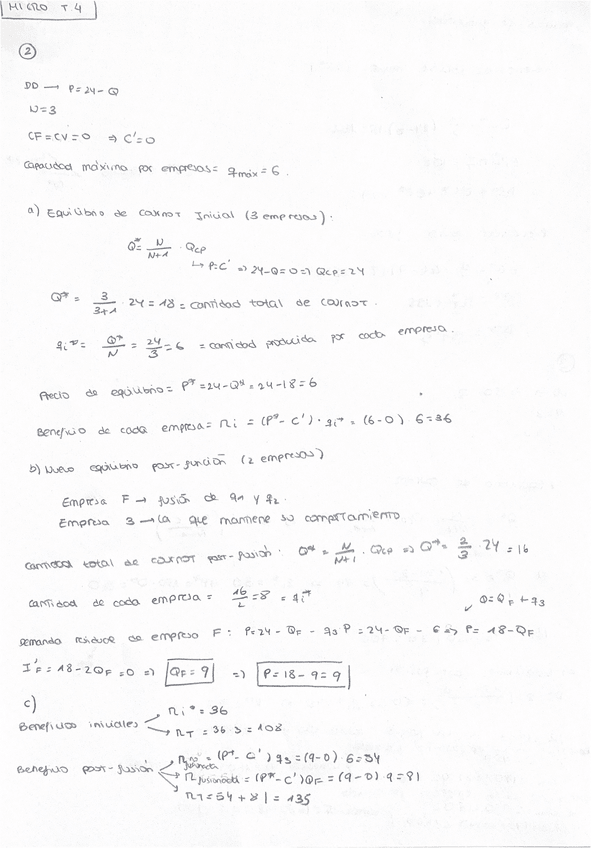 MICRO T.4
2
DD → P=24-Q
N=3
CF=CV=0 ⇒ C'=0
Capacidad máxima por empresas= qmáx=6.
a) Equilibrio de Cournot Inicial (3 empresas):
Q*= N/N+1 · Qcp
↳ P=C' ⇒ 24-Q=0 ⇒ Qcp=24
Q* = 3/3+1 · 24=18= cantidad total de Cournot.
qi*= Q*/N = 24/3 =6 = cantidad producida por cada empresa.
Precio de equilibrio= P*=24-Q*=24-18=6
Beneficio de cada empresa= πi = (P*-C')·qi* = (6-0) 6=36
b) Nuevo equilibrio post-función (2 empresas)
Empresa F → fusión de q1 y q2.
Empresa 3 → la que mantiene su comportamiento
Cantidad total de Cournot post-fusión: Q*= N/N+1 · Qcp ⇒ Q*= 2/3 · 24 = 16
Cantidad de cada empresa = 16/2 =8 = qi*
Q=QF+q3
Demanda residual de empresa F: P=24-QF-q3 P=24-QF-6 ⇒ P=18-QF
I'F=18-2QF=0 ⇒ QF=9 ⇒ P=18-9=9
c)
Beneficios iniciales
πi*=36
πT=36·3=108
Beneficio post-fusión
π no fusionada =(P*-C')q3=(9-0)·6=54
π fusionada=(P*-C')QF=(9-0)·9=81
πT=54+81=135